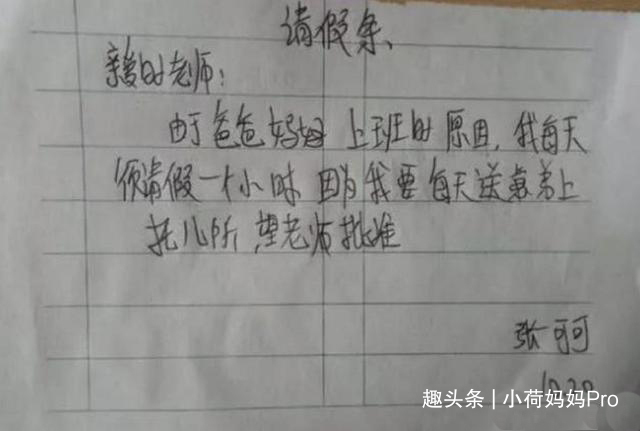 请假条、
亲爱的老师：
由于爸爸妈妈上班的原因，我每天
须请假一个小时 因为我要每天送弟弟上
托儿所，望老师批准
张可可
10.20
趣头条 | 小荷妈妈Pro